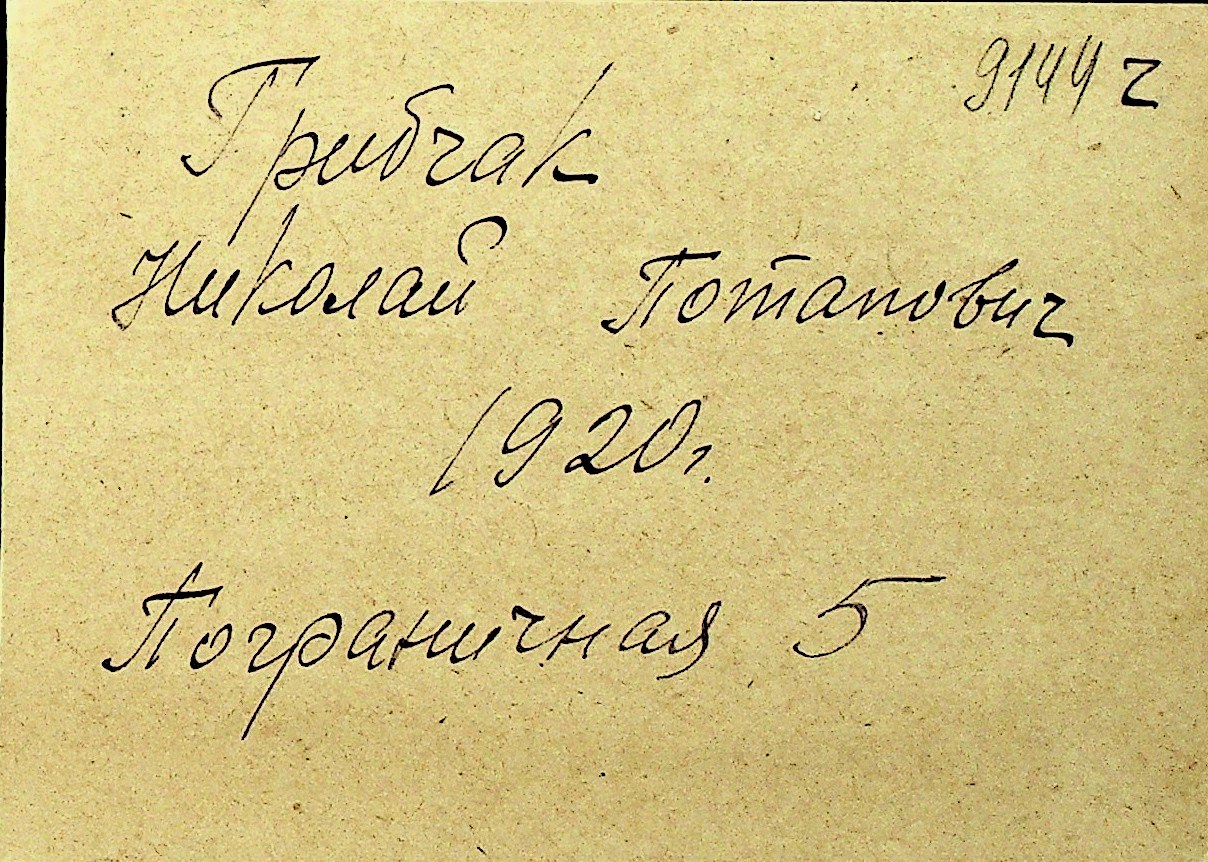 9144 г
Грибчак
Николай Потапович
1920г.
Пограничная 5